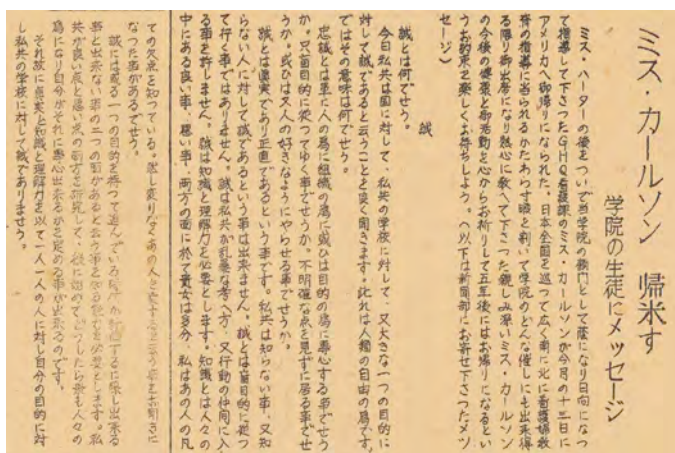 ミス・カールソン 帰米す
学院の生徒にメッセージ
ミス・ハーターの後をついで当学院の顧門として蔭になり日向になつ
て指導して下さつたGHQ看護課のミス・カールソンが今月の十三日に
アメリカへ御帰りになられた。日本全国を巡つて広く南に北に看護婦教
育の指導に当られるかたわらす暇を割いて学院のどんな催しにも出来得
る限り御出席になり熱心に教へて下さつた親しみ深いミス・カールソン
の今後の健康と御活動を心からお祈りして五年後にはお帰りになるとい
うお約束を楽しくお待ちしよう。（以下は新聞部にお寄せ下さつたメツ
セージ）
誠
誠とは何でせう。
今日私共は国に対して、私共の学校に対して、又大きな一つの目的に
対して誠であると云うことを良く聞きます。此れは人類の自由の為です。
ではその意味は何でせう。
忠誠とは單に人の為に組織の為に或ひは目的の為に專心する事でせう
か。只盲目的に從つてゆく事でせうか。不明瞭な点を見ずに居る事でせ
うか。或ひは又人の好きなようにやらせる事でせうか。
誠とは眞実であり正直であるという事です。私共は知らない事、又知
らない人に対して誠であるという事は出来ません。誠とは盲目的に從つ
て行く事ではありません。誠は私共が乱暴な考へ方、又行動の仲間に入
る事を許しません。誠は知識と理解力を必要とします。知識とは人々の
中にある良い事、悪い事、両方の面に於て貴女は多分、私はあの人の凡
ての欠点を知つている。然し矢りあの人を愛すると云う事を聞きに
なつた事があるでせう。
誠には或る一つの目的を持つて進んでいる に出来る
事と出来ない事の二つの面があると云う事を知る を必要とします。私
共が良い点と悪い点の両方を研究して、後に始めて どうしたら最も人々の
為になり自分がそれに專心出来るかを定める事が出来るのです。
それ故に眞実と知識と理解力を以て一人一人の人に対し自分の目的に対
し私共の学校に対して誠でありませう。